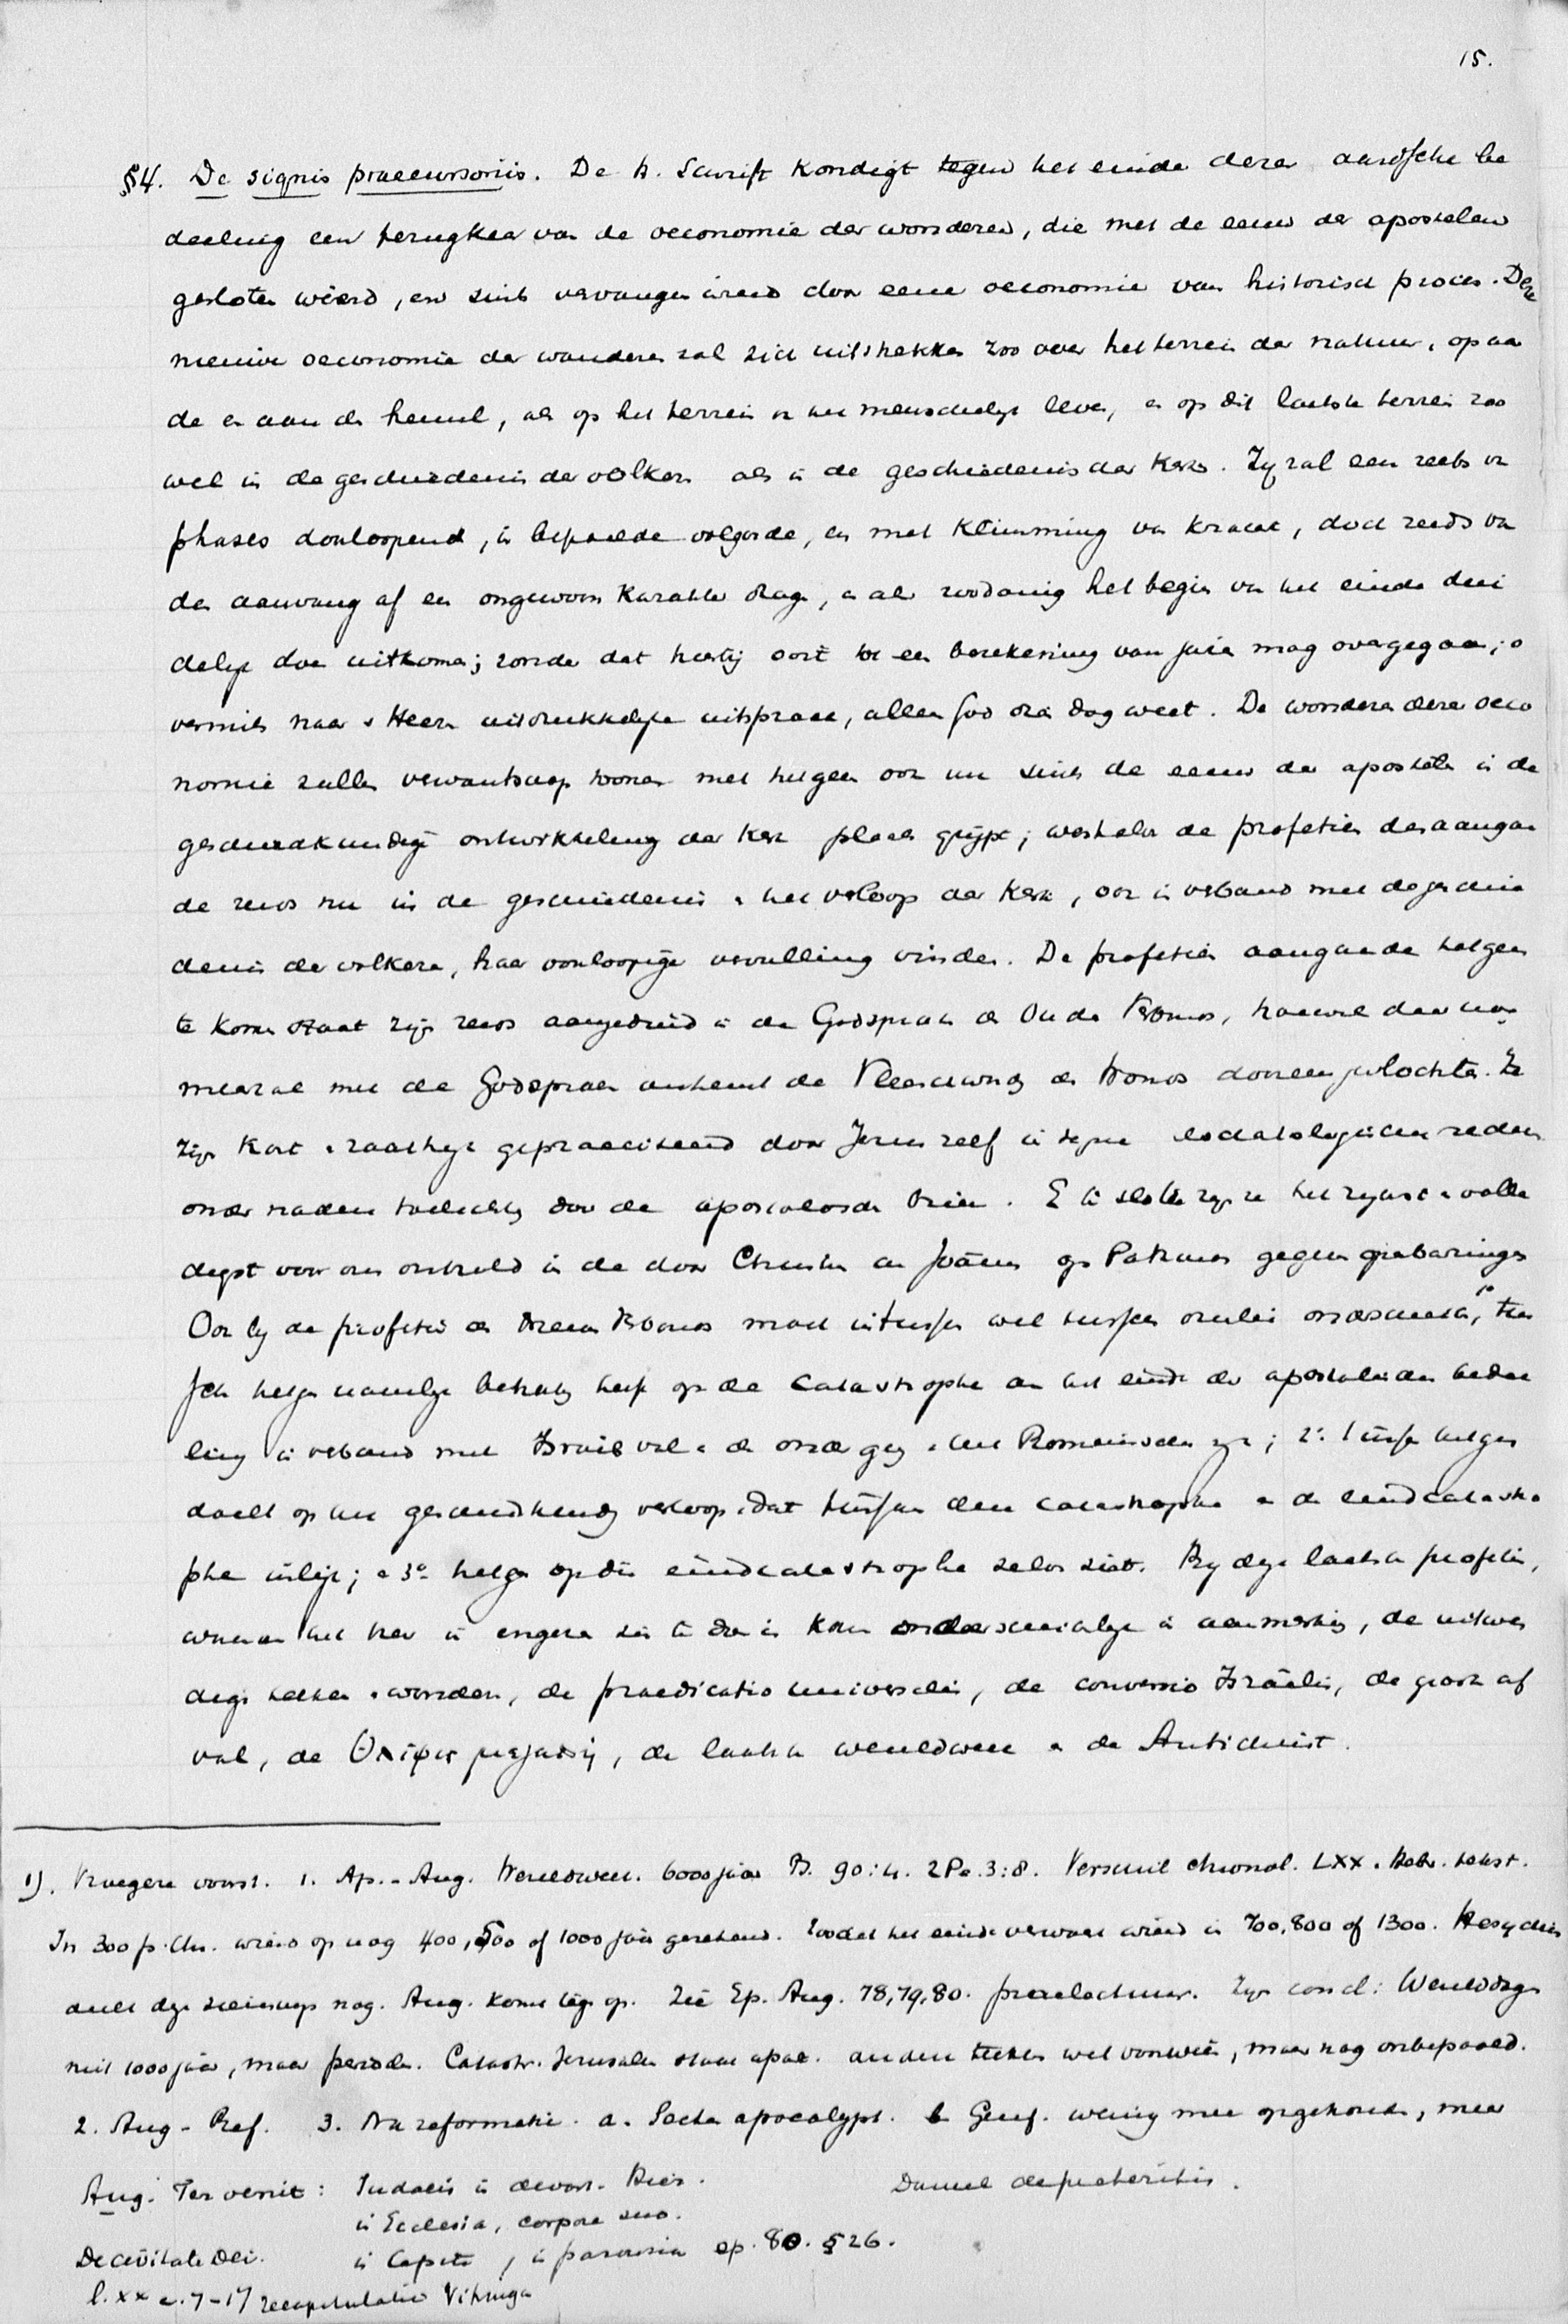 15.
§4. De signis praecursoriis. De H. Schrift kondigt tegen het einde dezer aardsche be
deeling een terugkeer van de oeconomie der wonderen, die met de eeuw der apostelen
gesloten wierd, en sints vervangen wierd door eene oeconomie van historisch proces. Deze
nieuwe oeconomie der wonderen zal zich uitstrekken zoo over het terrein der natuur, op aar
de en aan den hemel, als op het terrein van het menschelijk leven, en op dit laatste terrein zoo
wel in de geschiedenis der volken als in de geschiedenis der Kerk. Zij zal een reeks van
phases doorloopend, in bepaalde volgorde, en met klimming van kracht, doch reeds van
den aanvang af een ongewoon karakter dragen, en als zoodanig het begin van het einde dui
delijk doen uitkomen; zonder dat hierbij ooit tot een berekening van jaren mag overgegaan; o
vermits naar 's Heeren uitdrukkelijke uitspraak, alleen God dien dag weet. De wonderen dezer oeco
nomie zullen verwantschap toonen met hetgeen ook nu sints de eeuw der apostelen in de
geschiedkundige ontwikkeling der Kerk plaats grijpt; weshalve de profetieën desaangaan
de reeds nu in de geschiedenis en het verloop der Kerk, ook in verband met de geschie
denis der volkeren, haar voorloopige vervulling vinden. De profetieën aangaande hetgeen
te komen staat zijn reeds aangeduid in de Godspraken des Ouden Verbonds, hoewel daar nog
meeral met de Godspraken omtrent de Vleeschwording des Woords dooreengevlochten. Ze
zijn kort en zakelijk gepraeciseerd door Jezus zelf in zijne eschatologische redenen
onder nadere toelichting door de apostolische brieven. En ten slotte zijn ze het rijkst en volle
digst voor ons onthuld in de door Christus aan Joannes op Patmos gegeven openbaringen
Ook bij de profetieën des Nieuwen Verbonds moet intusschen wel tusschen drieërlei onderscheiden, 1o tus
schen hetgeen namelijk betrekking heeft op de catastrophe aan het einde der apostolische bedee
ling in verband met Israëls val en de ondergang van het Romeinsche rijk; 2o. tusschen hetgeen
doelt op het geschiedkundig verloop, dat tusschen deze catastrophe en de eindcatastro
phe inligt; en 3o. hetgeen op die eindcatastrophe zelve ziet. Bij deze laatste profetieën,
waarom het hier in engeren zin te doen is komen onderscheidenlijk in aanmerking, de uitwen
dige teekenen en wonderen, de praedicatio universalis, de conversio Israëlis, de groote af
val, de Θλῖψις μεγάλη, de laatste wereldweek en de Antichrist.
1). Vroegere voorst. 1. Ap.-Aug. Wereldweek. 6000 jaar Ps. 90:4. 2 Pe. 3:8. Verschil chronol. LXX. Hebr. tekst.
In 300 p. Chr. wierd op nog 400, 500 of 1000 jaar gerekend. Zoodat het einde verwacht wierd in 700, 800 of 1300. Hesychius
deelt deze zienswijs nog. Aug. komt tegen op. Zie Ep. Aug. 78, 79, 80. Zijn concl: Werelddagen
niet 1000 jaar, maar perioden. Catastr. Jerusalem staat apart. andere teekenen wel voorwaar, maar nog onbepaald.
2. Aug - Ref. 3. Na reformatie. a. Secten apocalypt. b Geref. weinig mee opgehouden, meer
Aug. Ter venit: Iudaeis in devast. Hier. Daniel de praeteritis.
in Ecclesia, corpore suo.
De civitate Dei. in Capite, in parousia ep. 80. § 26.
l. XX c. 7-17 recapitulatio Vitringa